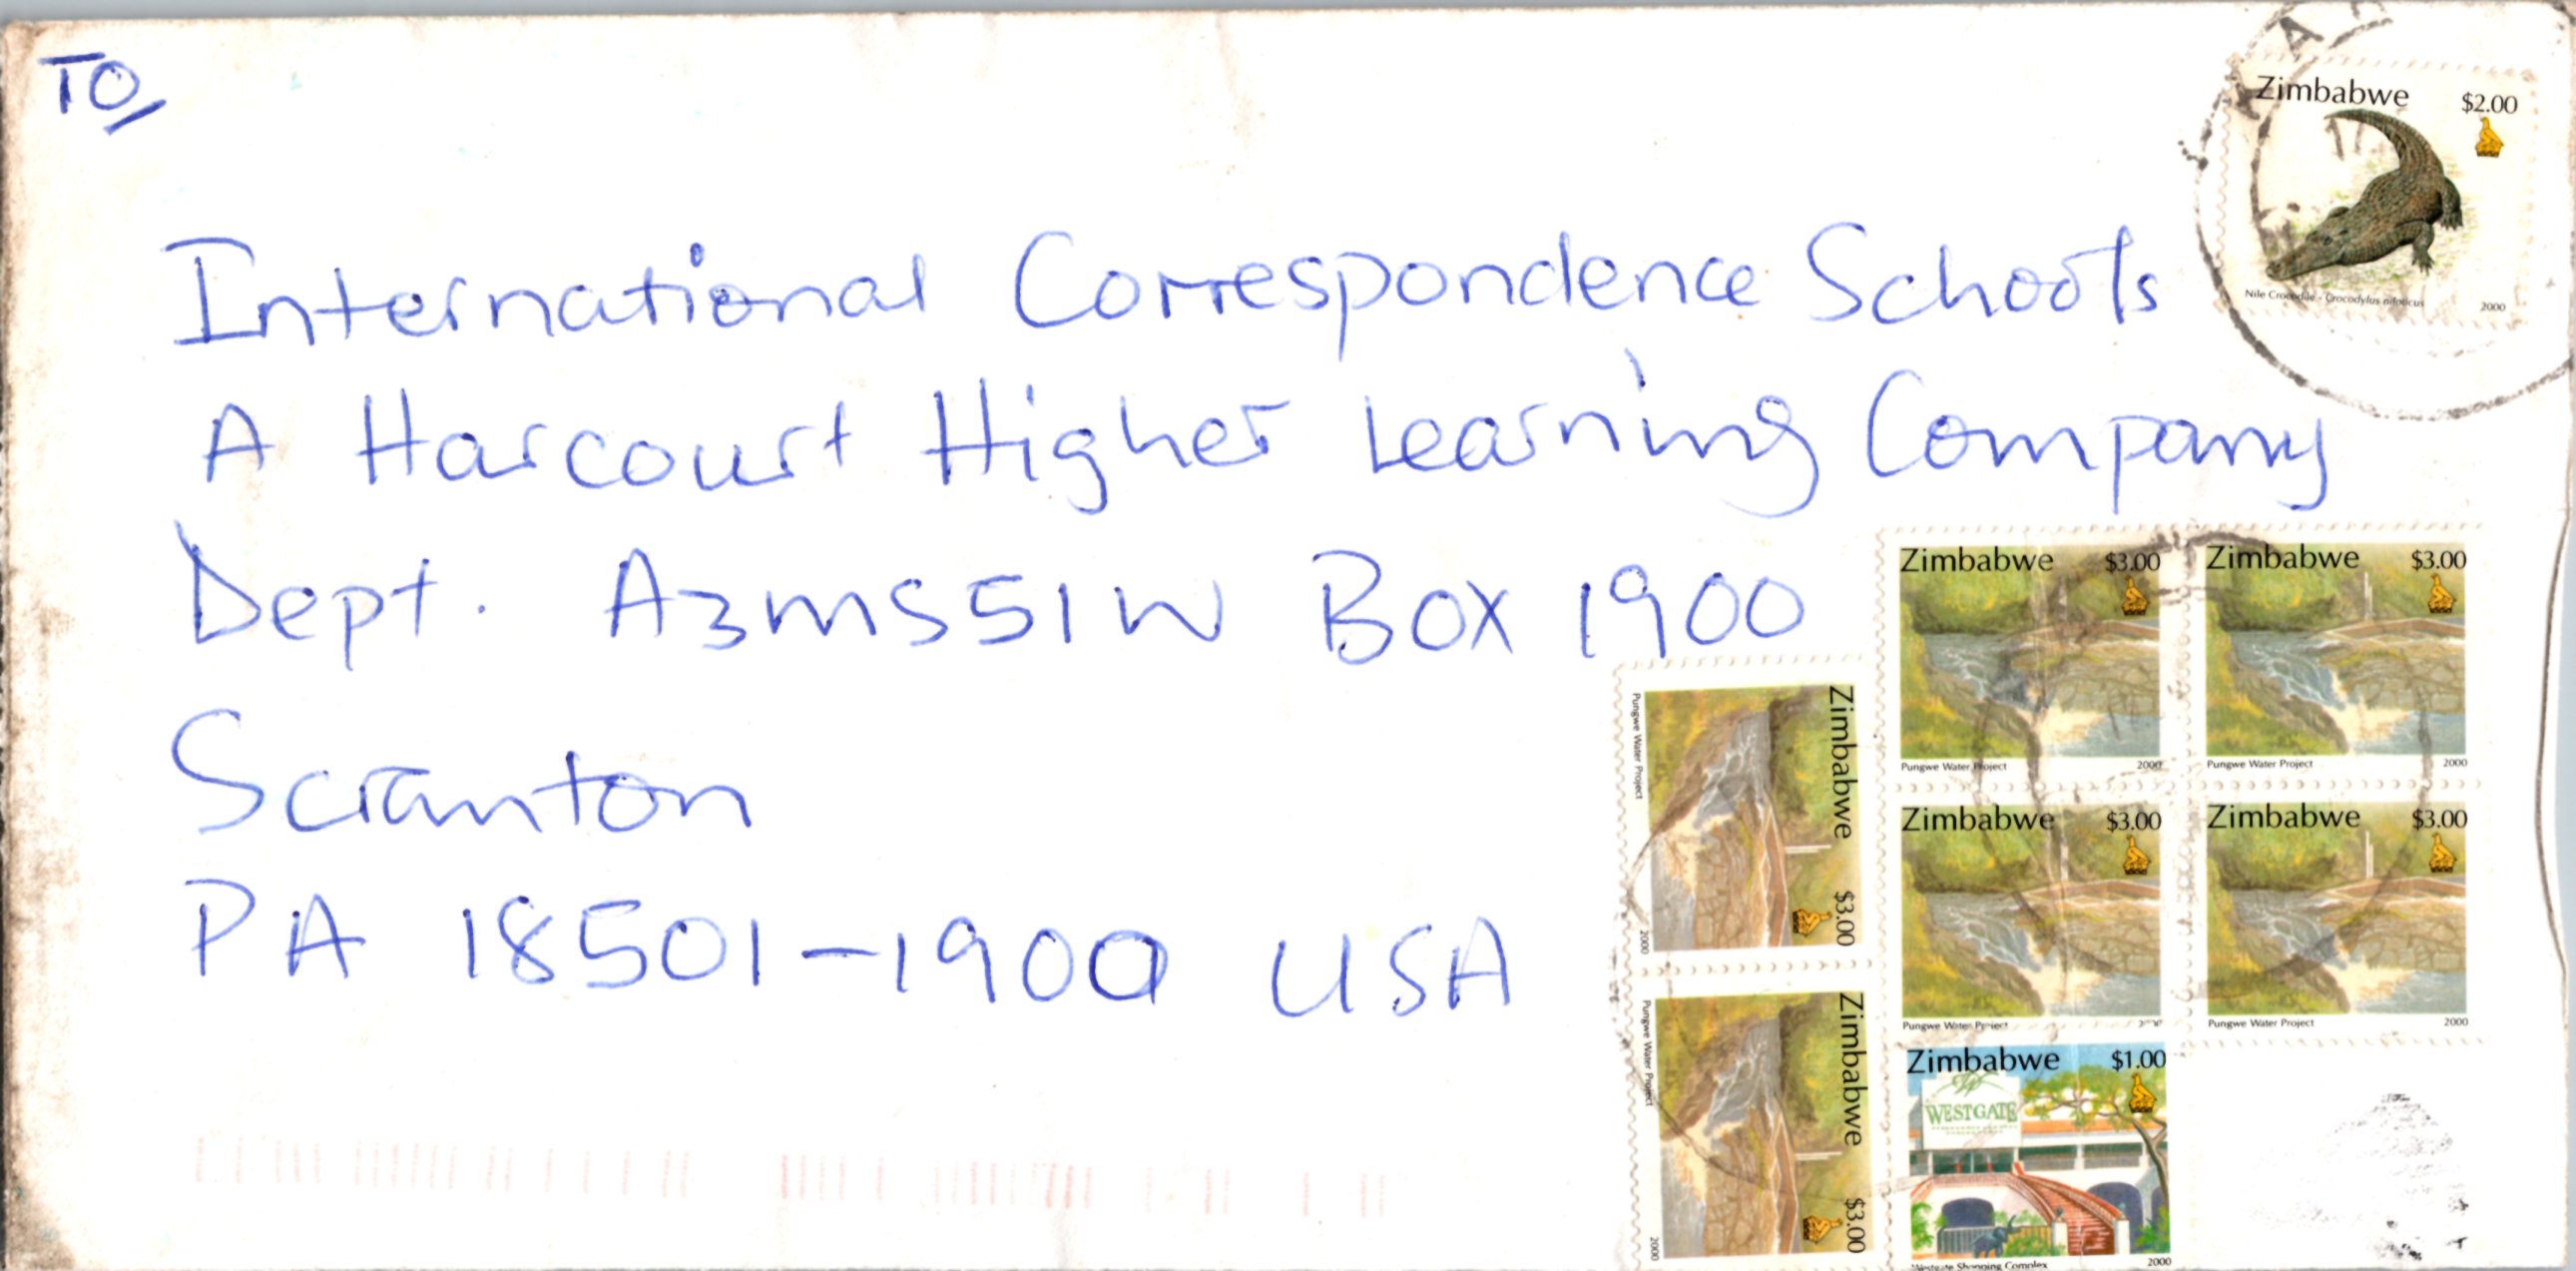 TO
International Correspondence Schools
A Harcourt Higher Learning Company
Dept. A3MS51W Box 1900
Scranton
PA 18501-1900 USA
Zimbabwe $2.00
Nile Crocodile - Crocodylus niloticus 2000
Zimbabwe $3.00
Pungwe Water Project 2000
Zimbabwe $3.00
Pungwe Water Project 2000
Zimbabwe $3.00
Pungwe Water Project 2000
Zimbabwe $3.00
Pungwe Water Project 2000
Zimbabwe $3.00
Pungwe Water Project 2000
Zimbabwe $3.00
Pungwe Water Project 2000
Zimbabwe $1.00
WESTGATE
Westgate Shopping Complex 2000